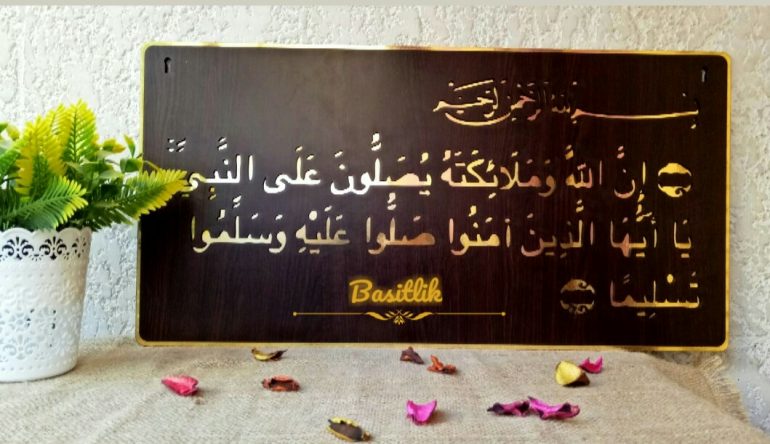 بِسْمِ اللَّهِ الرَّحْمَنِ الرَّحِيمِ
إِنَّ اللَّهَ وَمَلَائِكَتَهُ يُصَلُّونَ عَلَى النَّبِيِّ
يَا أَيُّهَا الَّذِينَ آمَنُوا صَلُّوا عَلَيْهِ وَسَلِّمُوا
تَسْلِيمًا
Basitlik